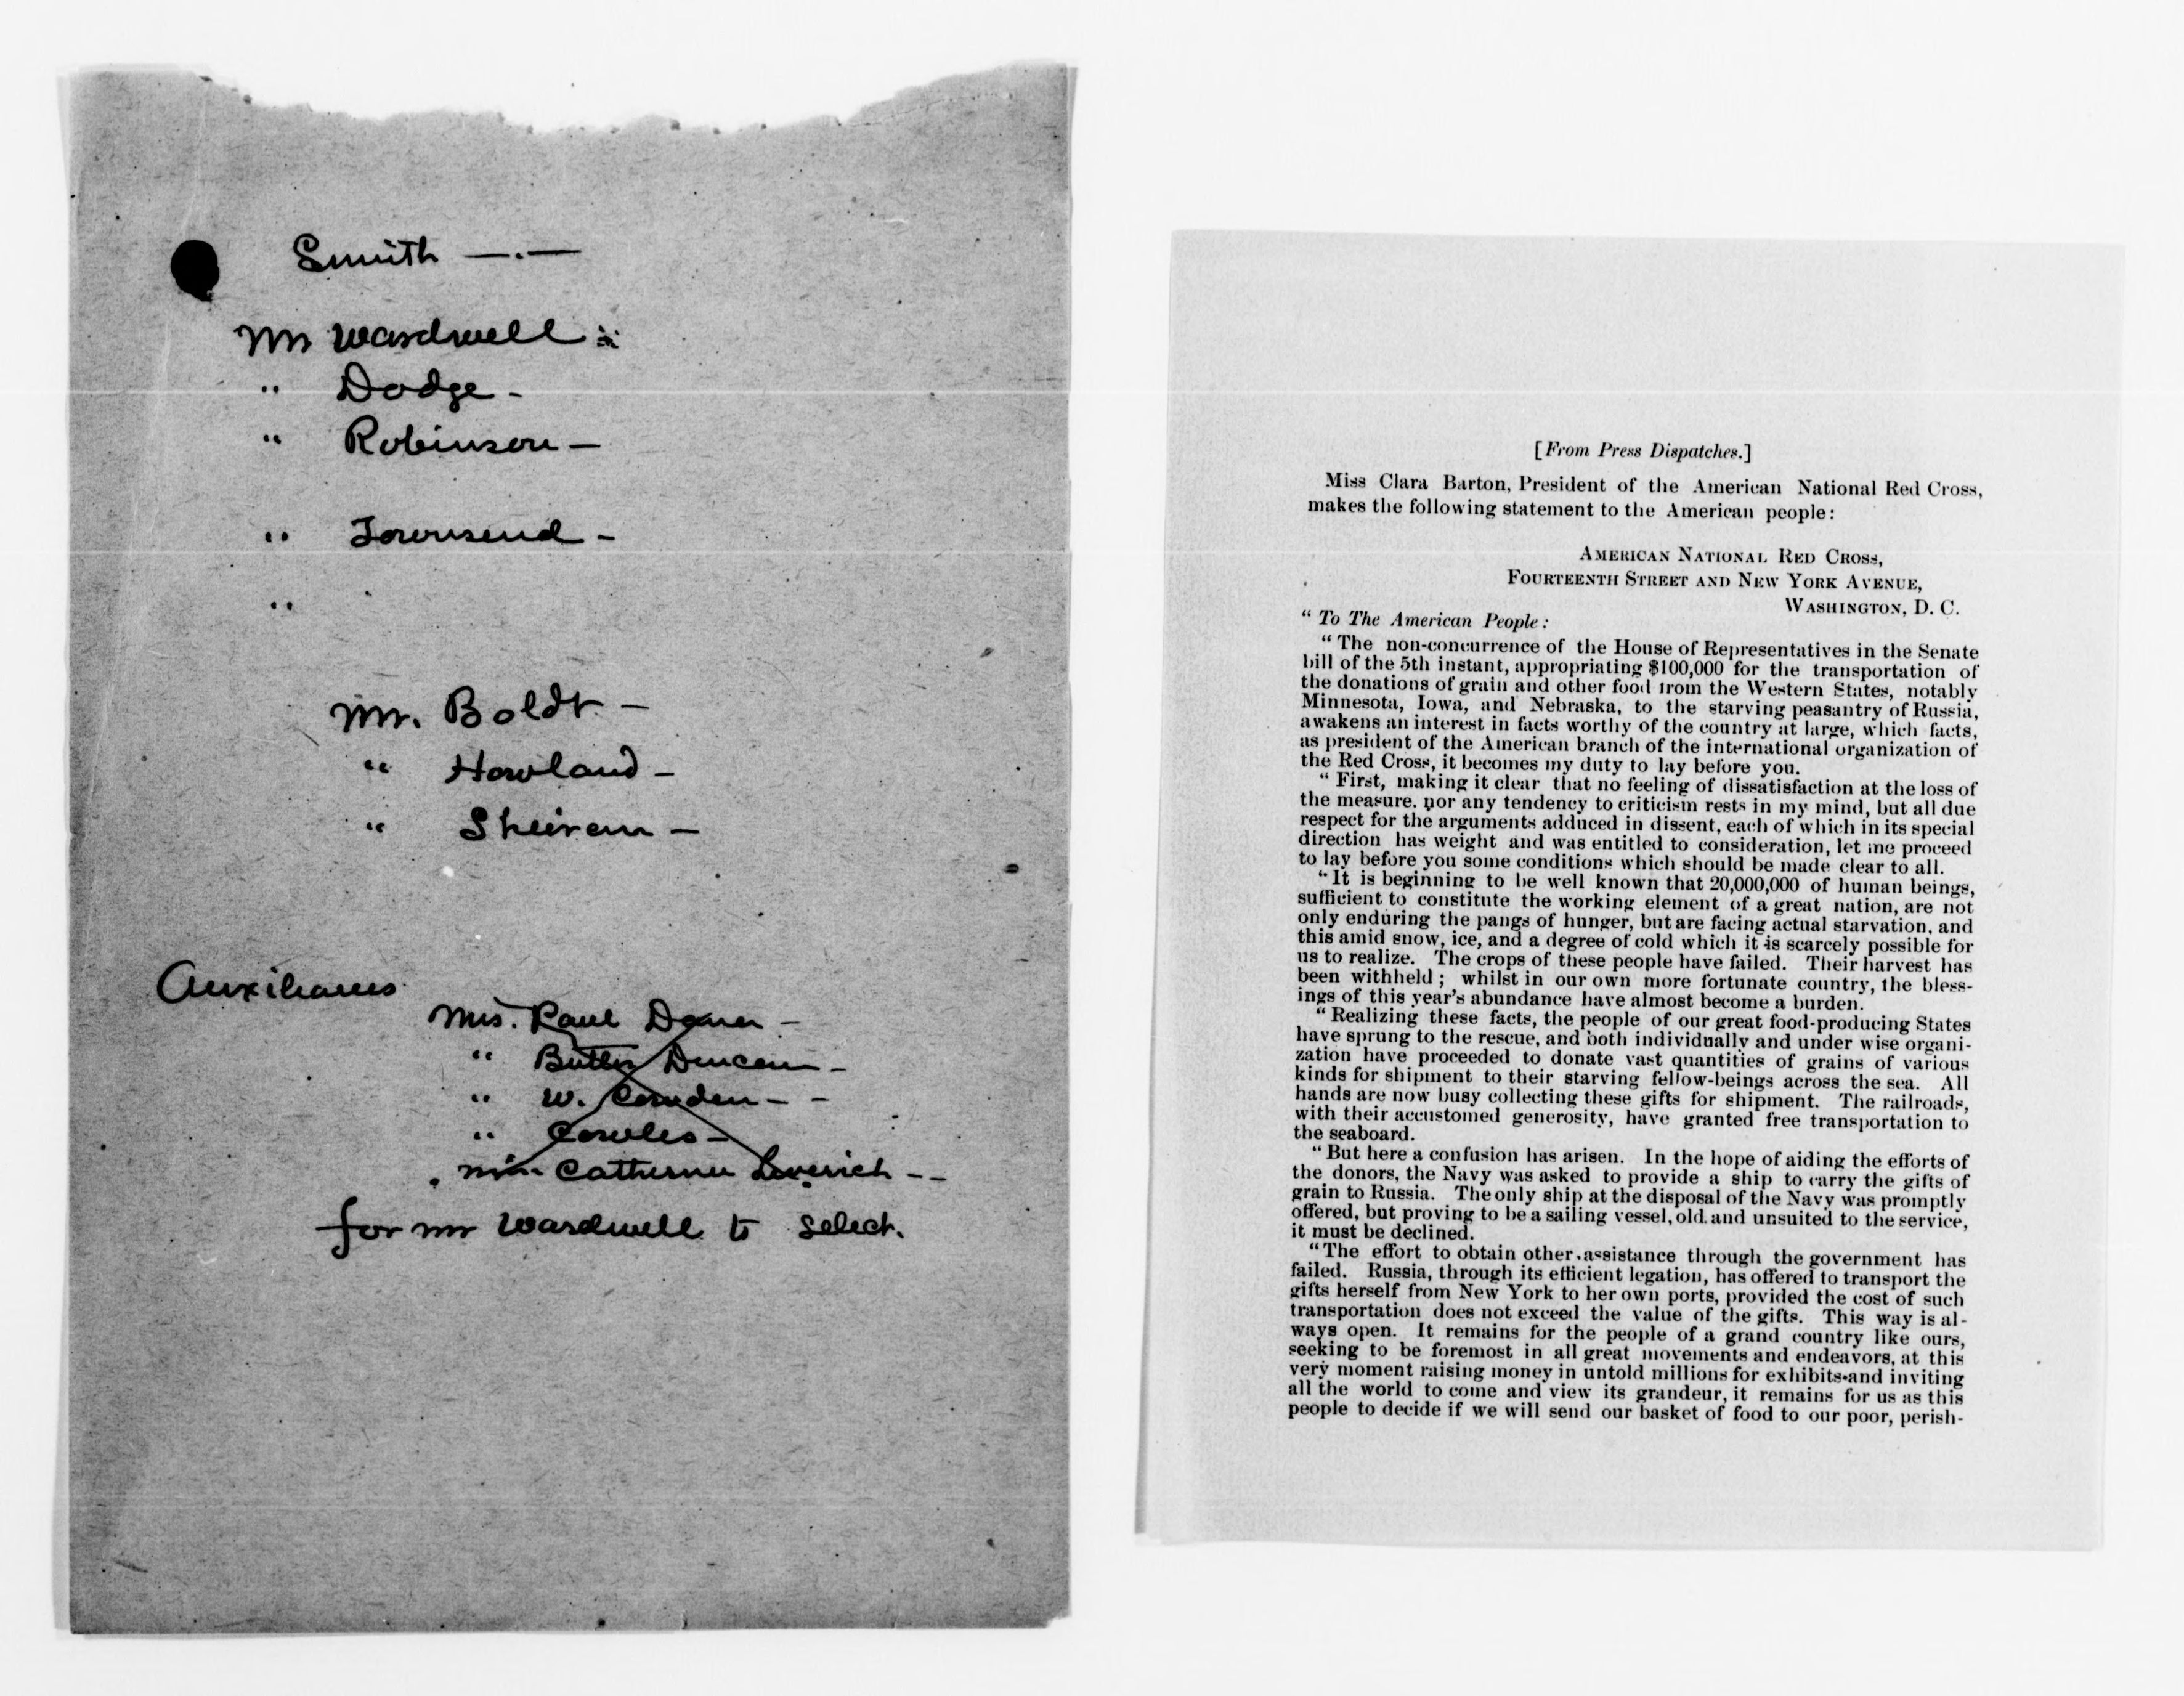 Smith —.—
Mr Wardwell
" Dodge -
" Robinson —
" Townsend -
"
Mr. Boldt —
" Howland -
" 
Auxiliaries
Mrs. Paul Dana -
" Butler Duncan -
" W. - -
" Cowles -
Miss Catherine Leverich - -
for Mr Wardwell to select.
[From Press Dispatches.]
Miss Clara Barton, President of the American National Red Cross,
makes the following statement to the American people:
AMERICAN NATIONAL RED CROSS,
FOURTEENTH STREET AND NEW YORK AVENUE,
WASHINGTON, D. C.
"To The American People:
"The non-concurrence of the House of Representatives in the Senate
bill of the 5th instant, appropriating $100,000 for the transportation of
the donations of grain and other food from the Western States, notably
Minnesota, Iowa, and Nebraska, to the starving peasantry of Russia,
awakens an interest in facts worthy of the country at large, which facts,
as president of the American branch of the international organization of
the Red Cross, it becomes my duty to lay before you.
"First, making it clear that no feeling of dissatisfaction at the loss of
the measure, nor any tendency to criticism rests in my mind, but all due
respect for the arguments adduced in dissent, each of which in its special
direction has weight and was entitled to consideration, let me proceed
to lay before you some conditions which should be made clear to all.
"It is beginning to be well known that 20,000,000 of human beings,
sufficient to constitute the working element of a great nation, are not
only enduring the pangs of hunger, but are facing actual starvation, and
this amid snow, ice, and a degree of cold which it is scarcely possible for
us to realize. The crops of these people have failed. Their harvest has
been withheld; whilst in our own more fortunate country, the bless-
ings of this year's abundance have almost become a burden.
"Realizing these facts, the people of our great food-producing States
have sprung to the rescue, and both individually and under wise organi-
zation have proceeded to donate vast quantities of grains of various
kinds for shipment to their starving fellow-beings across the sea. All
hands are now busy collecting these gifts for shipment. The railroads,
with their accustomed generosity, have granted free transportation to
the seaboard.
"But here a confusion has arisen. In the hope of aiding the efforts of
the donors, the Navy was asked to provide a ship to carry the gifts of
grain to Russia. The only ship at the disposal of the Navy was promptly
offered, but proving to be a sailing vessel, old and unsuited to the service,
it must be declined.
"The effort to obtain other assistance through the government has
failed. Russia, through its efficient legation, has offered to transport the
gifts herself from New York to her own ports, provided the cost of such
transportation does not exceed the value of the gifts. This way is al-
ways open. It remains for the people of a grand country like ours,
seeking to be foremost in all great movements and endeavors, at this
very moment raising money in untold millions for exhibits and inviting
all the world to come and view its grandeur, it remains for us as this
people to decide if we will send our basket of food to our poor, perish-